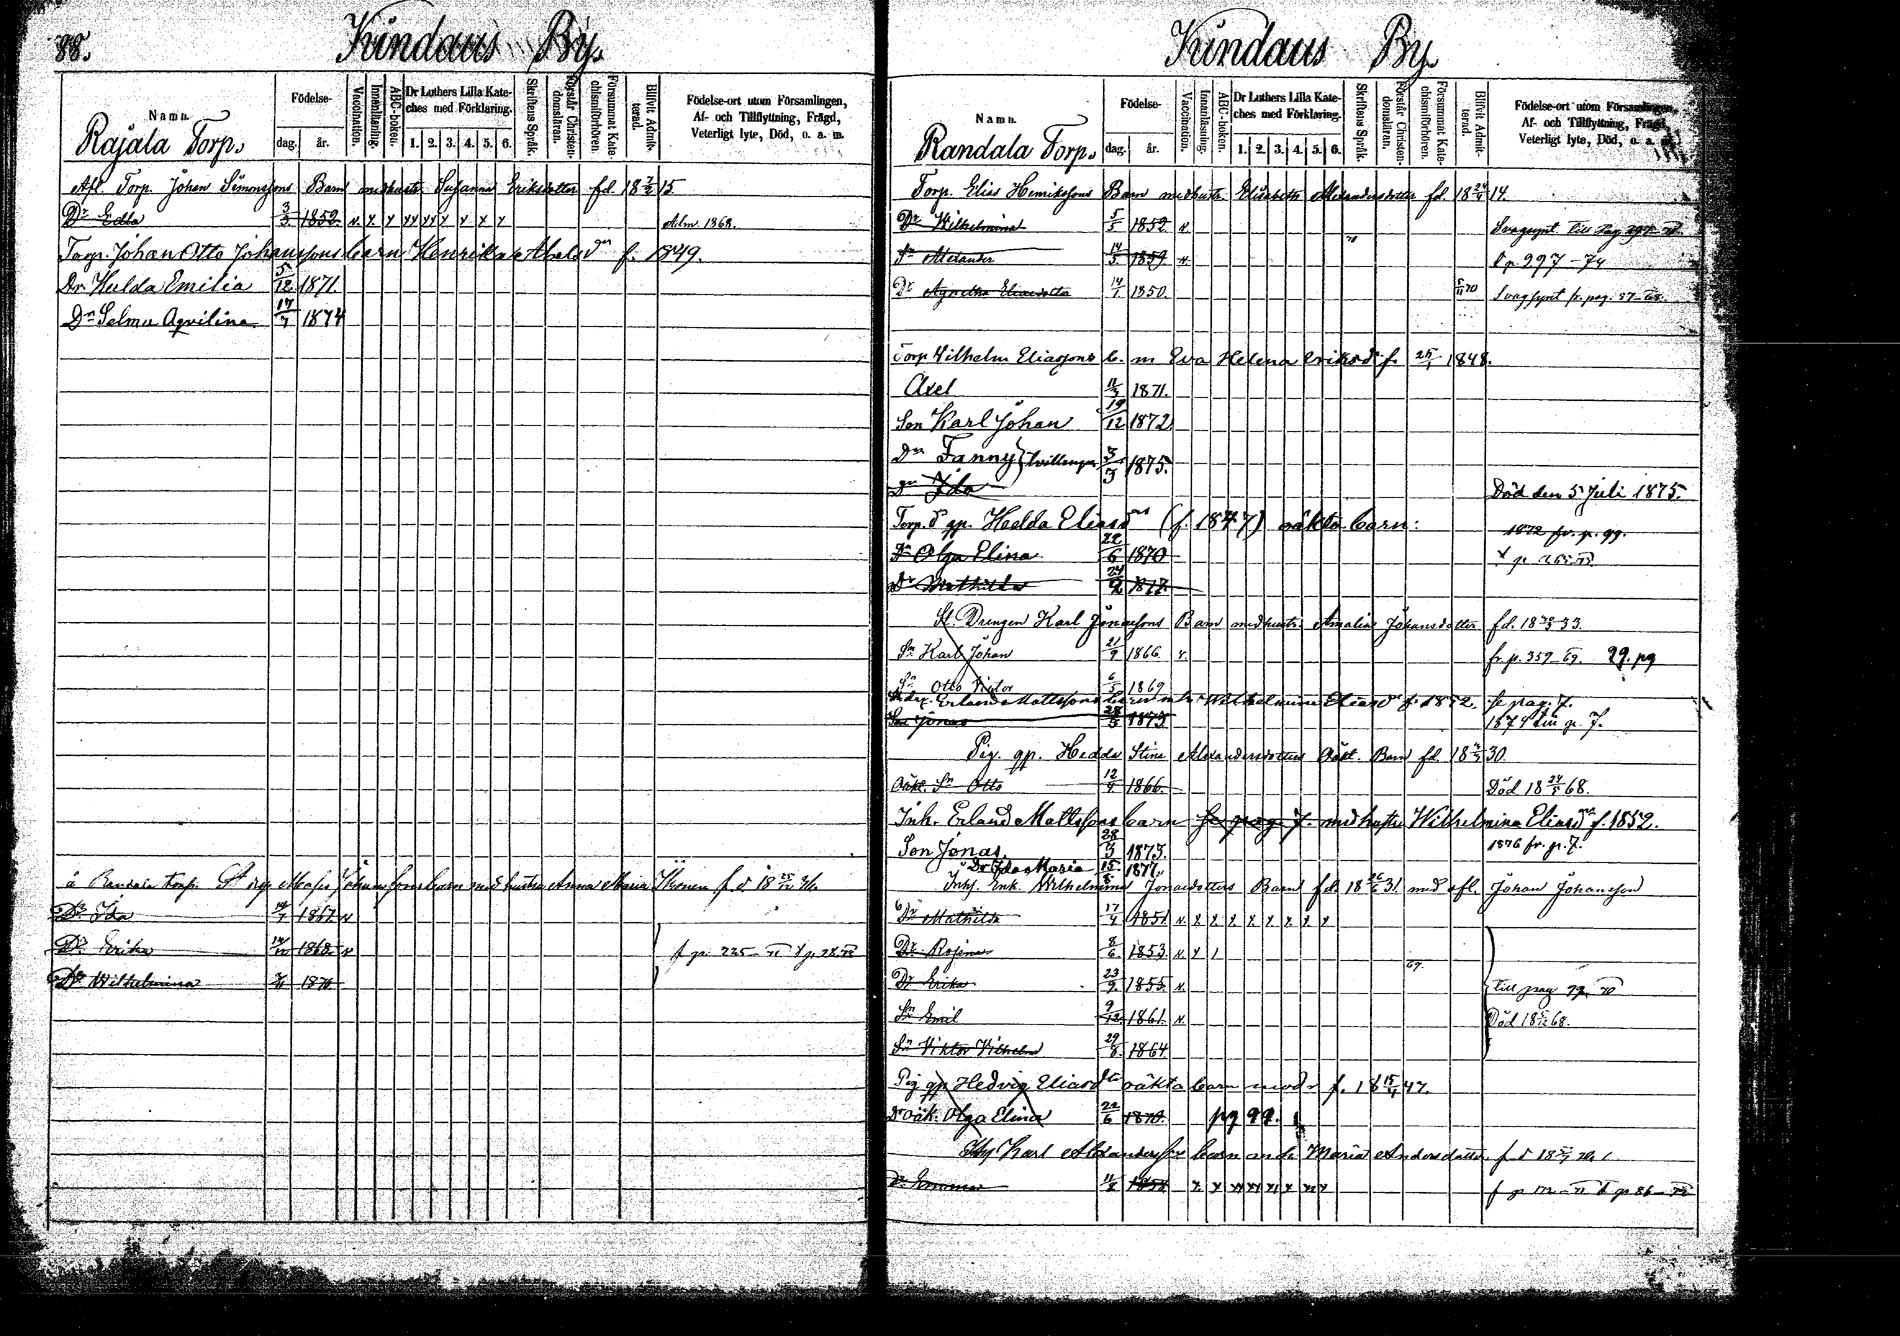 88.
Kŭndaus By.
Namn.
Rajala Torp.
Födelse-
dag.
år.
Vaccination.
Innanläsning.
ABC-boken.
Dr Luthers Lilla Kate-
ches med Förklaring.
1. 2. 3. 4. 5. 6.
Skriftens Språk.
Förstår Christen-
domsläran.
Försummat Kate-
chismiförhören.
Blifvit Admit-
terad.
Födelse-ort utom Församlingen,
Af- och Tillflyttning, Frägd,
Veterligt lyte, Död, o. a. m.
Afl. Torp. Johan Simonssons Barn med hustr. Susanna Eriksdotter fd. 18 7/2 15
Dr Edla 3/3 1852 Adm. 1868.
Torp. Johan Otto Johanssons barn Henrika Abelsdr f. 1849.
Dr Hulda Emilia 5/12 1871
Dr Selma Aqvilina 17/7 1874
å Randala torp. barn med hustru Anna Maria
Dr Ida 1867
Dr Erika 1868
Dr Wilhelmina
Kŭndaus By.
Namn.
Randala Torp.
Födelse-
dag.
år.
Vaccination.
Innanläsning.
ABC-boken.
Dr Luthers Lilla Kate-
ches med Förklaring.
1. 2. 3. 4. 5. 6.
Skriftens Språk.
Förstår Christen-
domsläran.
Försummat Kate-
chismiförhören.
Blifvit Admit-
terad.
Födelse-ort utom Församlingen,
Af- och Tillflyttning, Frägd,
Veterligt lyte, Död, o. a. m.
Torp. Elias Henrikssons Barn med hustr. Elisabeth Alexandersdotter fd. 18 24/4 14.
Dr Wilhelmina 5/5 1852
Sn Alexander 14/5 1859 p. 297-74
Dr Agnetha Eliaedotter 14/1 1850.
Torp Vilhelm Eliassons b. m Eva Helena Eriksdr f. 25/1 1848.
Axel 11/3 1871.
Son Karl Johan 19/12 1872
Dr Fanny } tvillingar 3/3 1875.
Dr Ida Död den 5 Juli 1875.
Torp. dr gp. Hedda Eliasdrs (f. 1847) oäkta barn: 1872 fr. p. 99.
Dr Olga Elina 22/6 1870
Dr Mathilda
St. Drengen Karl Jonassons Barn med hustr. Amalia Johansdotter fd. 33.
Sn Karl Johan 21/9 1866 fr. p. 359-69. 99. pg
Sn Otto Viktor 6/5 1869
Erland Mattssons barn Wilhelmina Eliasdr f. 1852. se pag. 7.
Son Jonas 28/3 1873 1874 till p. 7.
Pig. gp. Hedda Stina Alexandersdotters Oäkt. Barn fd. 30.
Oäkt. Sn Otto 12/4 1866 Död 18 24/5 68.
Inh. Erland Mattssons barn se pag 7. med hustru Wilhelmina Eliasdr f. 1852.
Son Jonas. 28/3 1873. 1876 fr. p. 7.
Dr Ida Maria 15/8 1877.
Inhs. Enk. Wilhelmina Jonaedotters Barn fd. 18 26/6 31. med afl. Johan Johansson
Dr Mathilda 17/4 1851
Dr Rosina 8/6 1853
Dr Erika 23/9 1855 till pag 79. 70
Sn Emil 9/12 1861 Död 68.
Sn Viktor Vilhelm 29/8 1864
Pig gp Hedvig Eliasdtr oäkta barn modr f. 18 15/4 47.
Dr oäk. Olga Elina 22/6 1870. pg 99.
Karl Alexanderssons barn Maria Andersdotter
Dr Emma